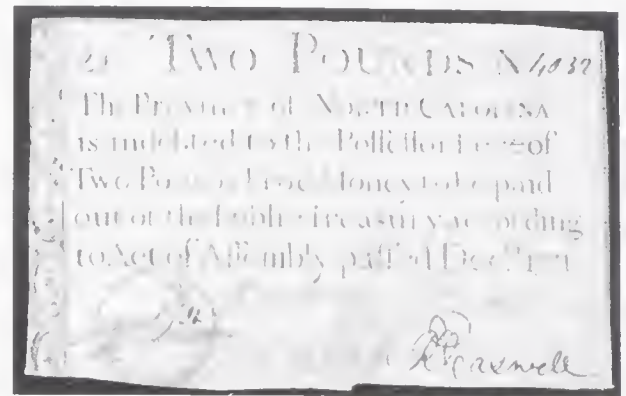 Two Pounds N 4032
The Province of North Carolina
is indebted to the Possessor hereof
Two Pounds Proc Money to be paid
out of the Publi Treasury according
to Act of Assembly passed Decem
R Caswell